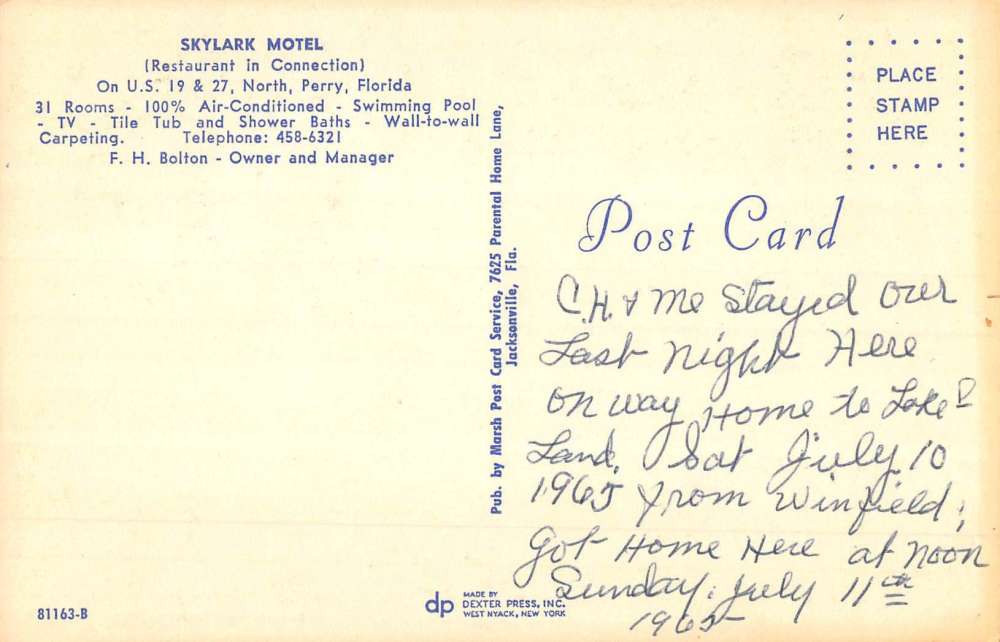 SKYLARK MOTEL
(Restaurant in Connection)
On U.S. 19 & 27, North, Perry, Florida
31 Rooms - 100% Air-Conditioned - Swimming Pool
- TV - Tile Tub and Shower Baths - Wall-to-wall
Carpeting. Telephone: 458-6321
F. H. Bolton - Owner and Manager
Pub. by Marsh Post Card Service, 7625 Parental Home Lane,
Jacksonville, Fla.
PLACE
STAMP
HERE
Post Card
C.H. & Me Stayed Over
Last Night Here
on way Home to Lake
Land, Sat July 10
1965 From Winfield,
Got Home Here at Noon
Sunday, July 11th
1965
81163-B
dp MADE BY
DEXTER PRESS, INC.
WEST NYACK, NEW YORK